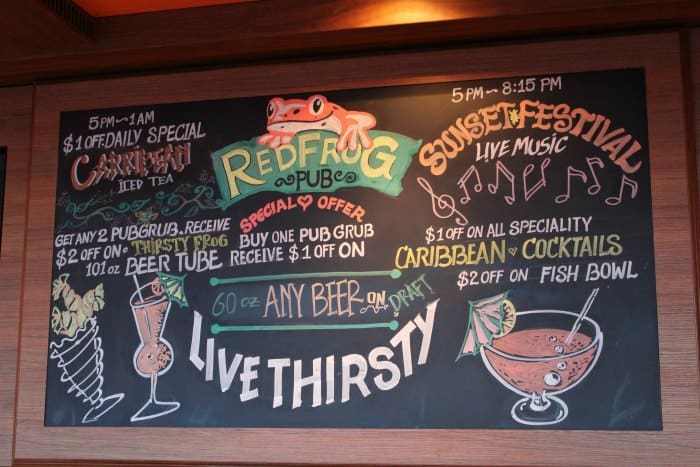 5 PM ~ 1 AM
$1 OFF DAILY SPECIAL
CARRIBEAN
ICED TEA
GET ANY 2 PUB GRUB. RECEIVE
$2 OFF ON • THIRSTY FROG
101 oz BEER TUBE
RED FROG
PUB
SPECIAL OFFER
BUY ONE PUB GRUB
RECEIVE $1 OFF ON
60 oz ANY BEER ON DRAFT
LIVE THIRSTY
5 PM ~ 8:15 PM
SUNSET FESTIVAL
LIVE MUSIC
$1 OFF ON ALL SPECIALITY
CARIBBEAN COCKTAILS
$2 OFF ON FISH BOWL